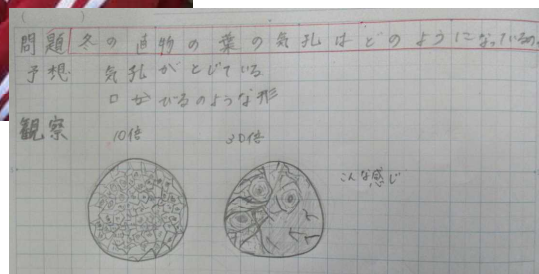 (　　)
問題 冬の植物の葉の気孔はどのようになっているのか。
予想 気孔がとじている
口がひるのような形
観察 10倍 30倍
こんな感じ